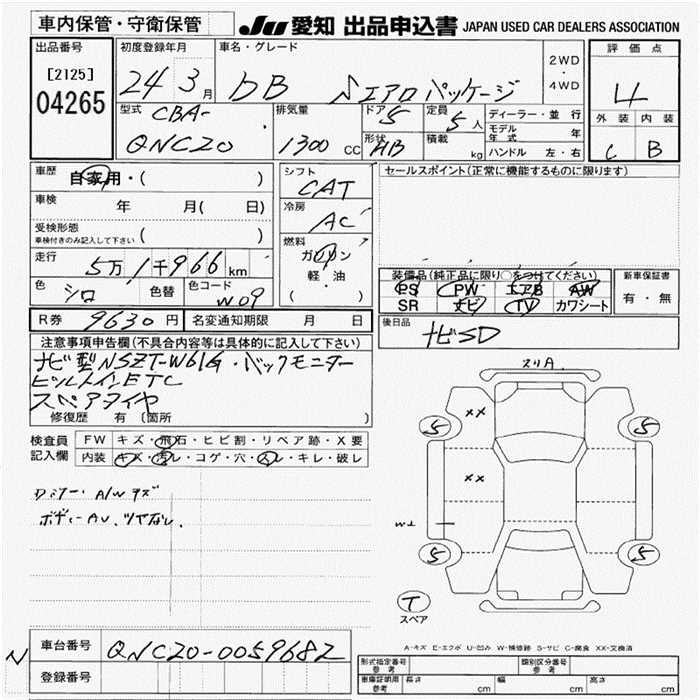 車内保管・守衛保管
JU 愛知 出品申込書 JAPAN USED CAR DEALERS ASSOCIATION
出品番号
[2125]
04265
初度登録年月
24年3月
車名・グレード
bB Sエアロパッケージ
2WD・4WD
評価点
4
外装 内装
C B
型式
CBA-
QNC20
排気量
1300 CC
ドア 5
形状 HB
定員 5人
積載 kg
ディーラー・並行
モデル年式 年
ハンドル 左・右
車歴 自家用・( )
車検 年 月( 日)
受検形態
車検付きのみ記入して下さい ( )
走行 5万1千966km
色 シロ
色替
色コード W09
シフト CAT
冷房 AC
燃料 ガソリン
軽・油
( )
セールスポイント(正常に機能するものに限ります)
装備品(純正品に限り○をつけてください)
PS PW エアB AW
SR ナビ TV カワシート
新車保証書
有・無
R券 9630円
名変通知期限 月 日
後日品 ナビSD
注意事項申告欄(不具合内容等は具体的に記入して下さい)
ナビ型NSZT-W61G・バックモニター
ビルトインETC
スペアタイヤ
修復歴 有 (箇所 )
検査員記入欄
FW キズ・飛石・ヒビ割・リペア跡・X要
内装 キズ・汚レ・コゲ・穴・スレ・キレ・破レ
A/Wキズ
ボディーAU、ツヤなし、
スリA
XX
5
5
XX
5
5
T
スペア
A-キズ E-エクボ U-凹み W-補修跡 S-サビ C-腐食 XX-交換済
N
車台番号 QNC20-0059682
登録番号
形式指定番号 参考
類別区分番号 参考
車庫証明用 参考 長さ cm 幅 cm 高さ cm